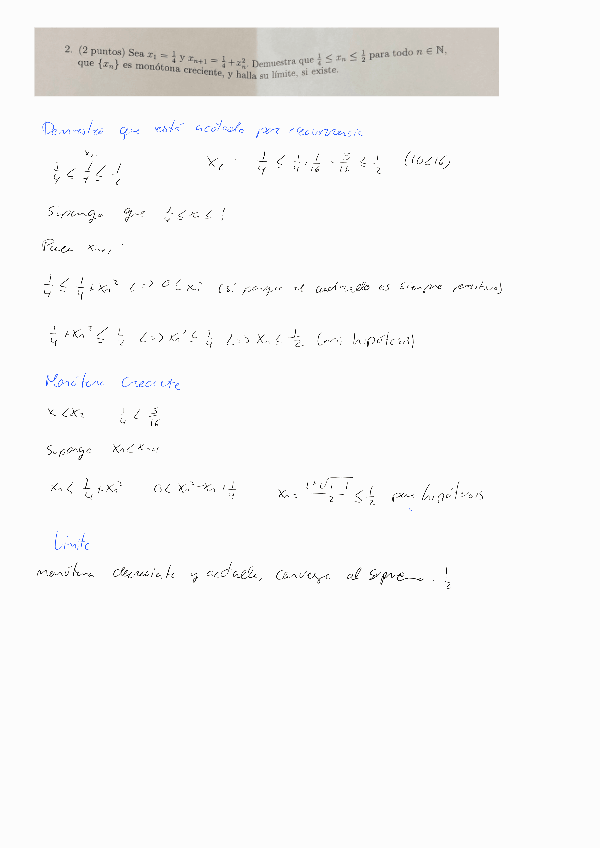 2. (2 puntos) Sea x₁ = 1/4 y xₙ₊₁ = 1/4 + xₙ². Demuestra que 1/4 ≤ xₙ ≤ 1/2 para todo n ∈ ℕ,
que {xₙ} es monótona creciente, y halla su límite, si existe.
Demuestro que está acotada por recurrencia
1/4 ≤ 1/4 ≤ 1/2 x₂ = 1/4 ≤ 1/4 + 1/16 = 5/16 ≤ 1/2 (10<16)
Supongo que
Para xₙ₊₁ :
1/4 ≤ 1/4 + xₙ² <=> 0 ≤ xₙ² (sí porque el cuadrado es siempre positivo)
1/4 + xₙ² ≤ 1/2 <=> xₙ² ≤ 1/4 <=> xₙ ≤ 1/2 (por hipótesis)
Monótona Creciente
x₁ < x₂ 1/4 < 5/16
Supongo xₙ < xₙ₊₁
xₙ < 1/4 + xₙ² 0 < xₙ² - xₙ + 1/4 xₙ = ≤ 1/2 por hipótesis
Límite
monótona y acotada, converge al supremo 1/2